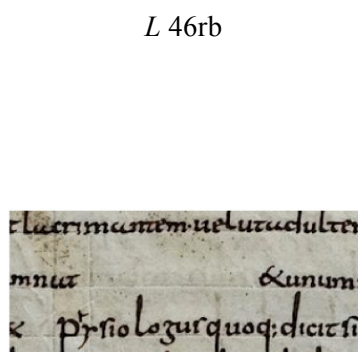 L 46rb
t lacrimantem·uelutadulter
mnat &unum
& phẏsiologus quoq; dicit si